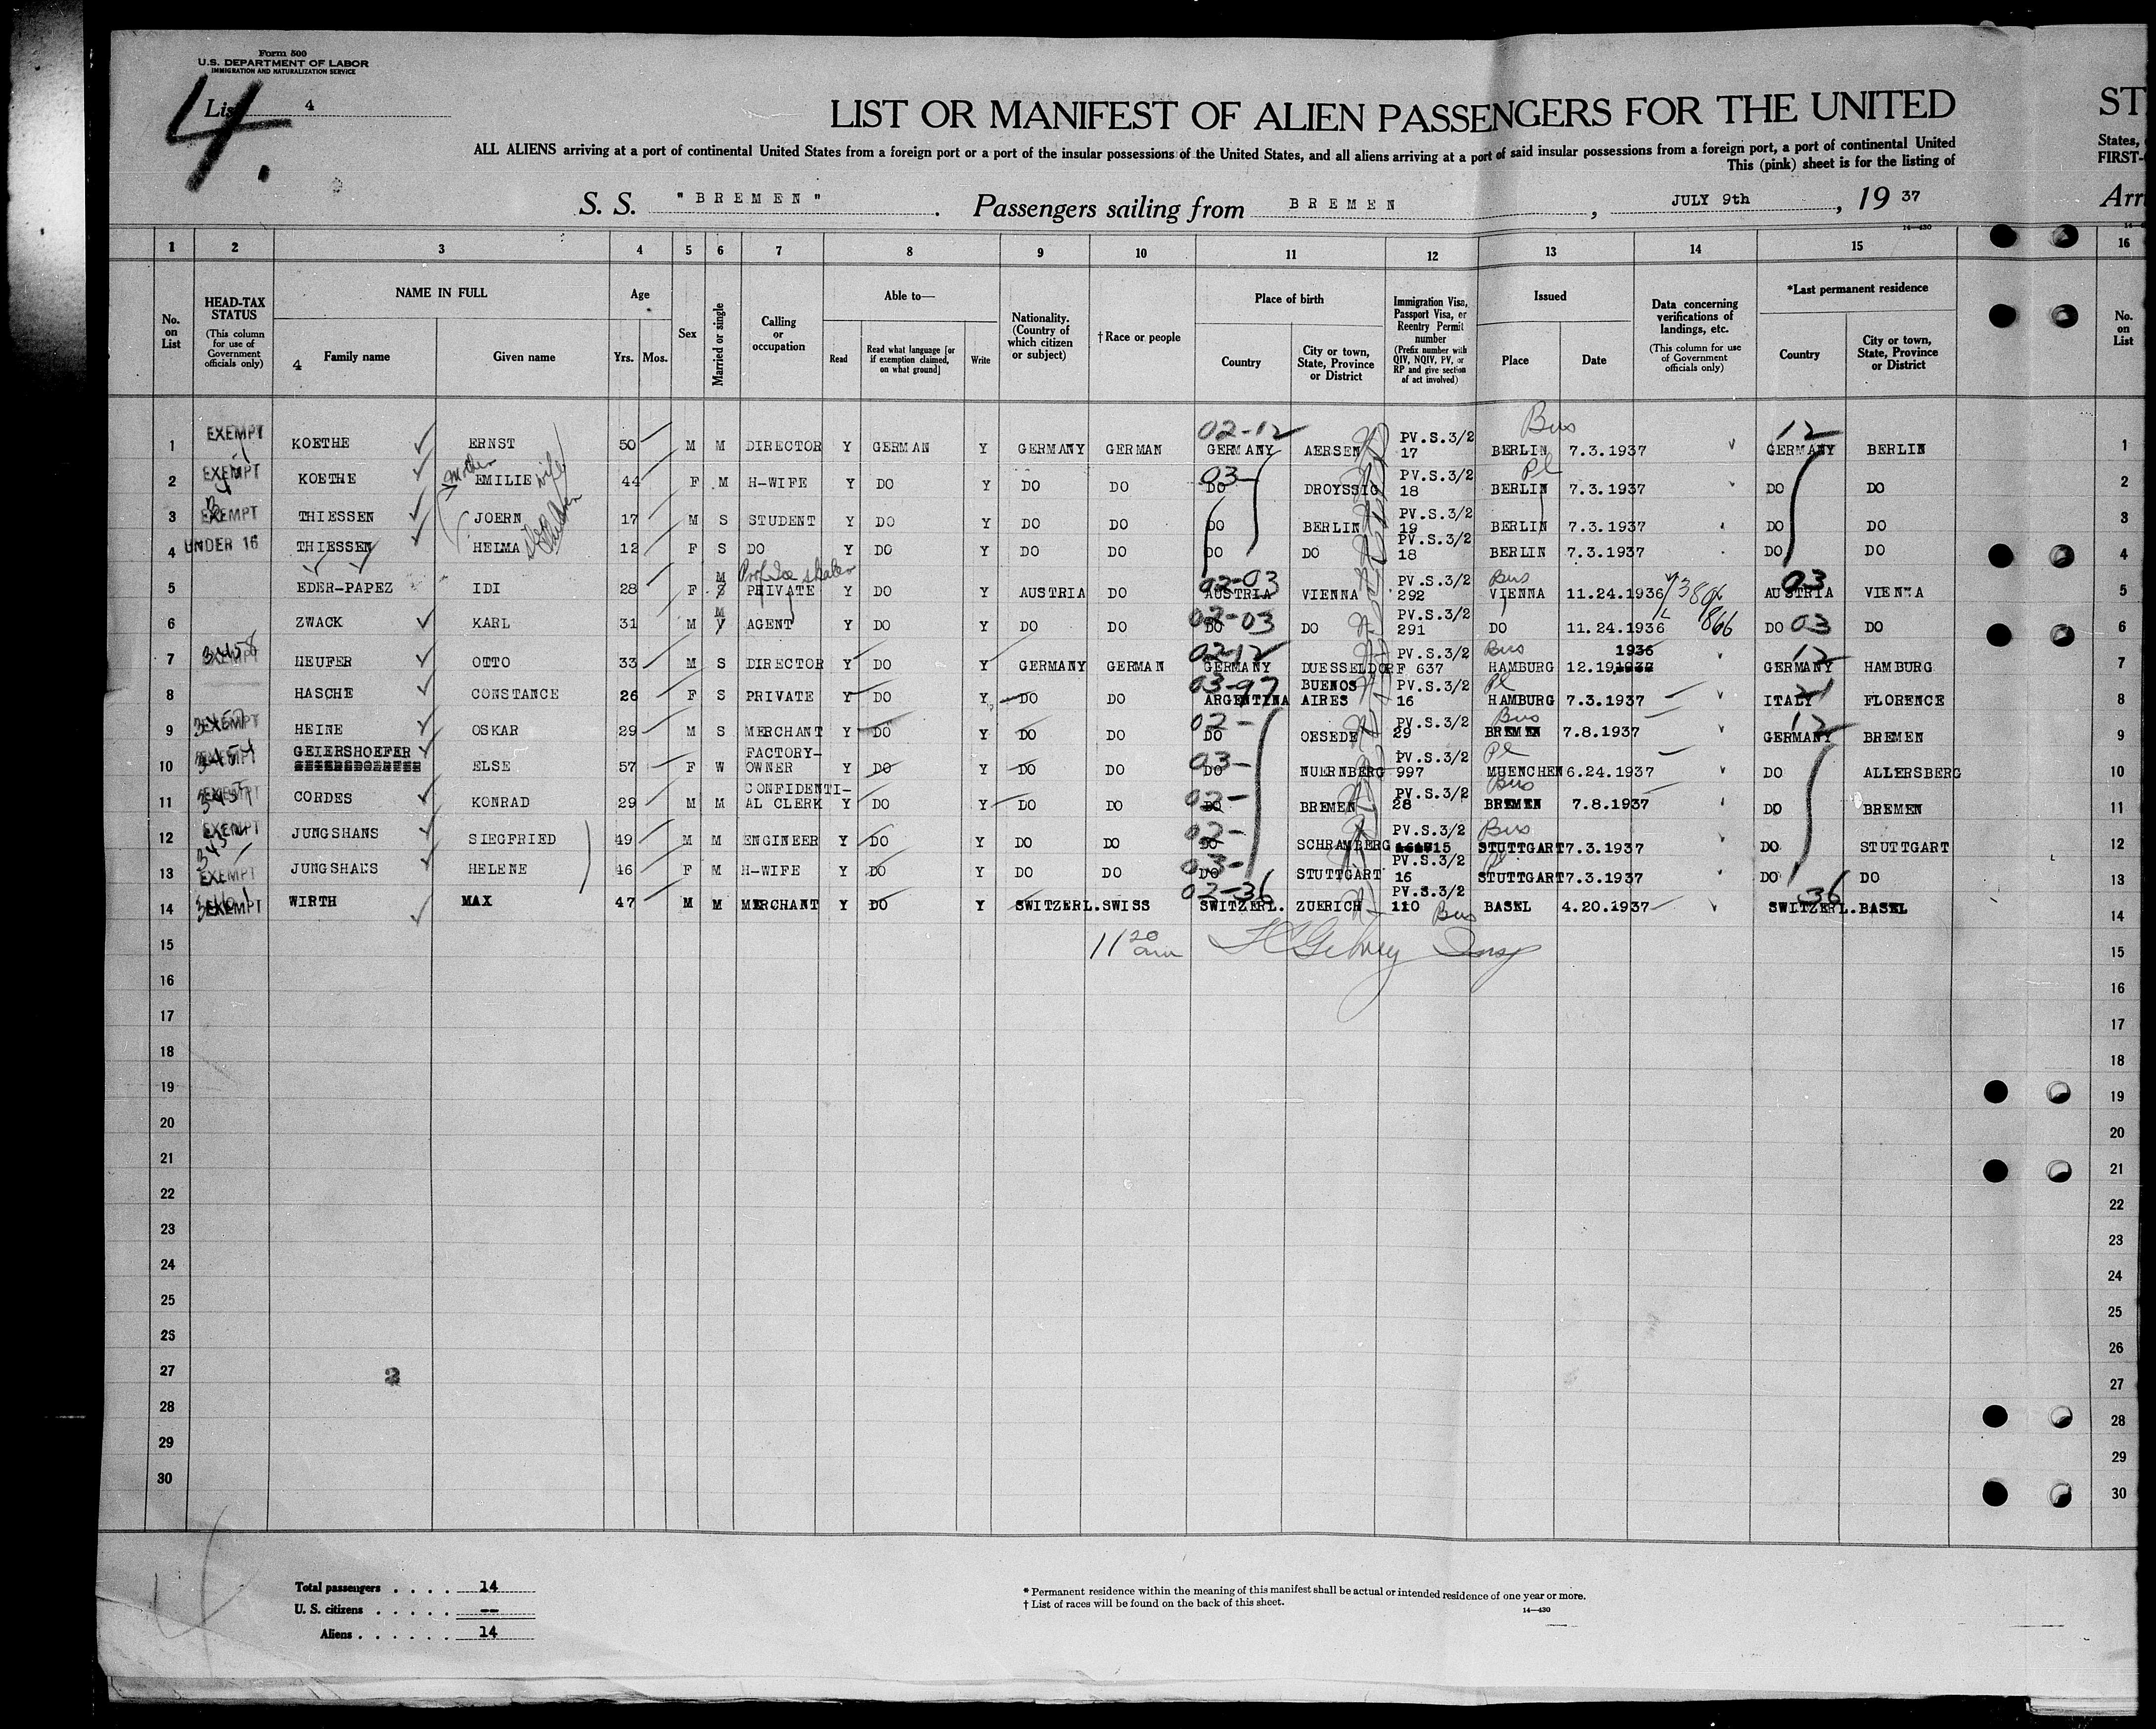 Form 500
U.S. DEPARTMENT OF LABOR
IMMIGRATION AND NATURALIZATION SERVICE
4.
List 4
LIST OR MANIFEST OF ALIEN PASSENGERS FOR THE UNITED ST
ALL ALIENS arriving at a port of continental United States from a foreign port or a port of the insular possessions of the United States, and all aliens arriving at a port of said insular possessions from a foreign port, a port of continental United States,
This (pink) sheet is for the listing of FIRST-
S. S. "BREMEN". Passengers sailing from BREMEN, JULY 9th, 19 37 Arri
14-430
1 2 3 4 5 6 7 8 9 10 11 12 13 14 15 16
No. on List
HEAD-TAX STATUS (This column for use of Government officials only)
NAME IN FULL
4 Family name Given name
Age
Yrs. Mos.
Sex
Married or single
Calling or occupation
Able to—
Read
Read what language [or if exemption claimed, on what ground]
Write
Nationality. (Country of which citizen or subject)
†Race or people
Place of birth
Country
City or town, State, Province or District
Immigration Visa, Passport Visa, or Reentry Permit number (Prefix number with QIV, NQIV, PV, or RP and give section of act involved)
Issued
Place Date
Data concerning verifications of landings, etc. (This column for use of Government officials only)
*Last permanent residence
Country
City or town, State, Province or District
No. on List
1 EXEMPT KOETHE ERNST 50 M M DIRECTOR Y GERMAN Y GERMANY GERMAN 02-12 GERMANY AERSEN PV.S.3/2 17 Bus BERLIN 7.3.1937 12 GERMANY BERLIN 1
2 EXEMPT KOETHE mother EMILIE wife 44 F M H-WIFE Y DO Y DO DO 03- DO DROYSSIG PV.S.3/2 18 Pl BERLIN 7.3.1937 DO DO 2
3 EXEMPT THIESSEN JOERN children 17 M S STUDENT Y DO Y DO DO DO BERLIN PV.S.3/2 19 BERLIN 7.3.1937 DO DO 3
4 UNDER 16 THIESSEN HELMA 12 F S DO Y DO Y DO DO DO DO PV.S.3/2 18 BERLIN 7.3.1937 DO DO 4
5 EDER-PAPEZ IDI 28 F M S Prof Ice skater PRIVATE Y DO Y AUSTRIA DO 02-03 AUSTRIA VIENNA PV.S.3/2 292 Bus VIENNA 11.24.1936 03 AUSTRIA VIENNA 5
6 ZWACK KARL 31 M M AGENT Y DO Y DO DO 02-03 DO DO PV.S.3/2 291 DO 11.24.1936 866 DO 03 DO 6
7 3458 EXEMPT HEUFER OTTO 33 M S DIRECTOR Y DO Y GERMANY GERMAN 02-12 GERMANY DUESSELDORF PV.S.3/2 637 Bus HAMBURG 12.19.1936 12 GERMANY HAMBURG 7
8 HASCHE CONSTANCE 26 F S PRIVATE Y DO Y DO DO 03-97 ARGENTINA BUENOS AIRES PV.S.3/2 16 Pl HAMBURG 7.3.1937 21 ITALY FLORENCE 8
9 EXEMPT HEINE OSKAR 29 M S MERCHANT Y DO Y DO DO 02- DO OESEDE PV.S.3/2 29 Bus BREMEN 7.8.1937 12 GERMANY BREMEN 9
10 EXEMPT GEIERSHOEFER ELSE 57 F W FACTORY-OWNER Y DO Y DO DO 03- DO NUERNBERG PV.S.3/2 997 Pl MUENCHEN 6.24.1937 DO ALLERSBERG 10
11 EXEMPT CORDES KONRAD 29 M M CONFIDENTIAL CLERK Y DO Y DO DO 02- DO BREMEN PV.S.3/2 28 Bus BREMEN 7.8.1937 DO BREMEN 11
12 EXEMPT JUNGSHANS SIEGFRIED 49 M M ENGINEER Y DO Y DO DO 02- DO SCHRAMBERG PV.S.3/2 15 Bus STUTTGART 7.3.1937 DO STUTTGART 12
13 EXEMPT JUNGSHANS HELENE 46 F M H-WIFE Y DO Y DO DO 03- DO STUTTGART PV.S.3/2 16 Pl STUTTGART 7.3.1937 DO DO 13
14 EXEMPT WIRTH MAX 47 M M MERCHANT Y DO Y SWITZERL. SWISS 02-36 SWITZERL. ZUERICH PV.S.3/2 110 Bus BASEL 4.20.1937 36 SWITZERL. BASEL 14
15 11 20 am 15
16 16
17 17
18 18
19 19
20 20
21 21
22 22
23 23
24 24
25 25
26 26
27 27
28 28
29 29
30 30
Total passengers . . . . 14
U. S. citizens . . . . . --
Aliens . . . . . . 14
* Permanent residence within the meaning of this manifest shall be actual or intended residence of one year or more.
† List of races will be found on the back of this sheet.
14-430